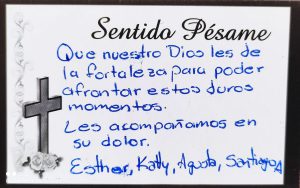 Sentido Pésame
Que nuestro Dios les de
la fortaleza para poder
afrontar estos duros
momentos.
Les acompañamos en
su dolor.
Esther, Katly, Agusto, Santiago